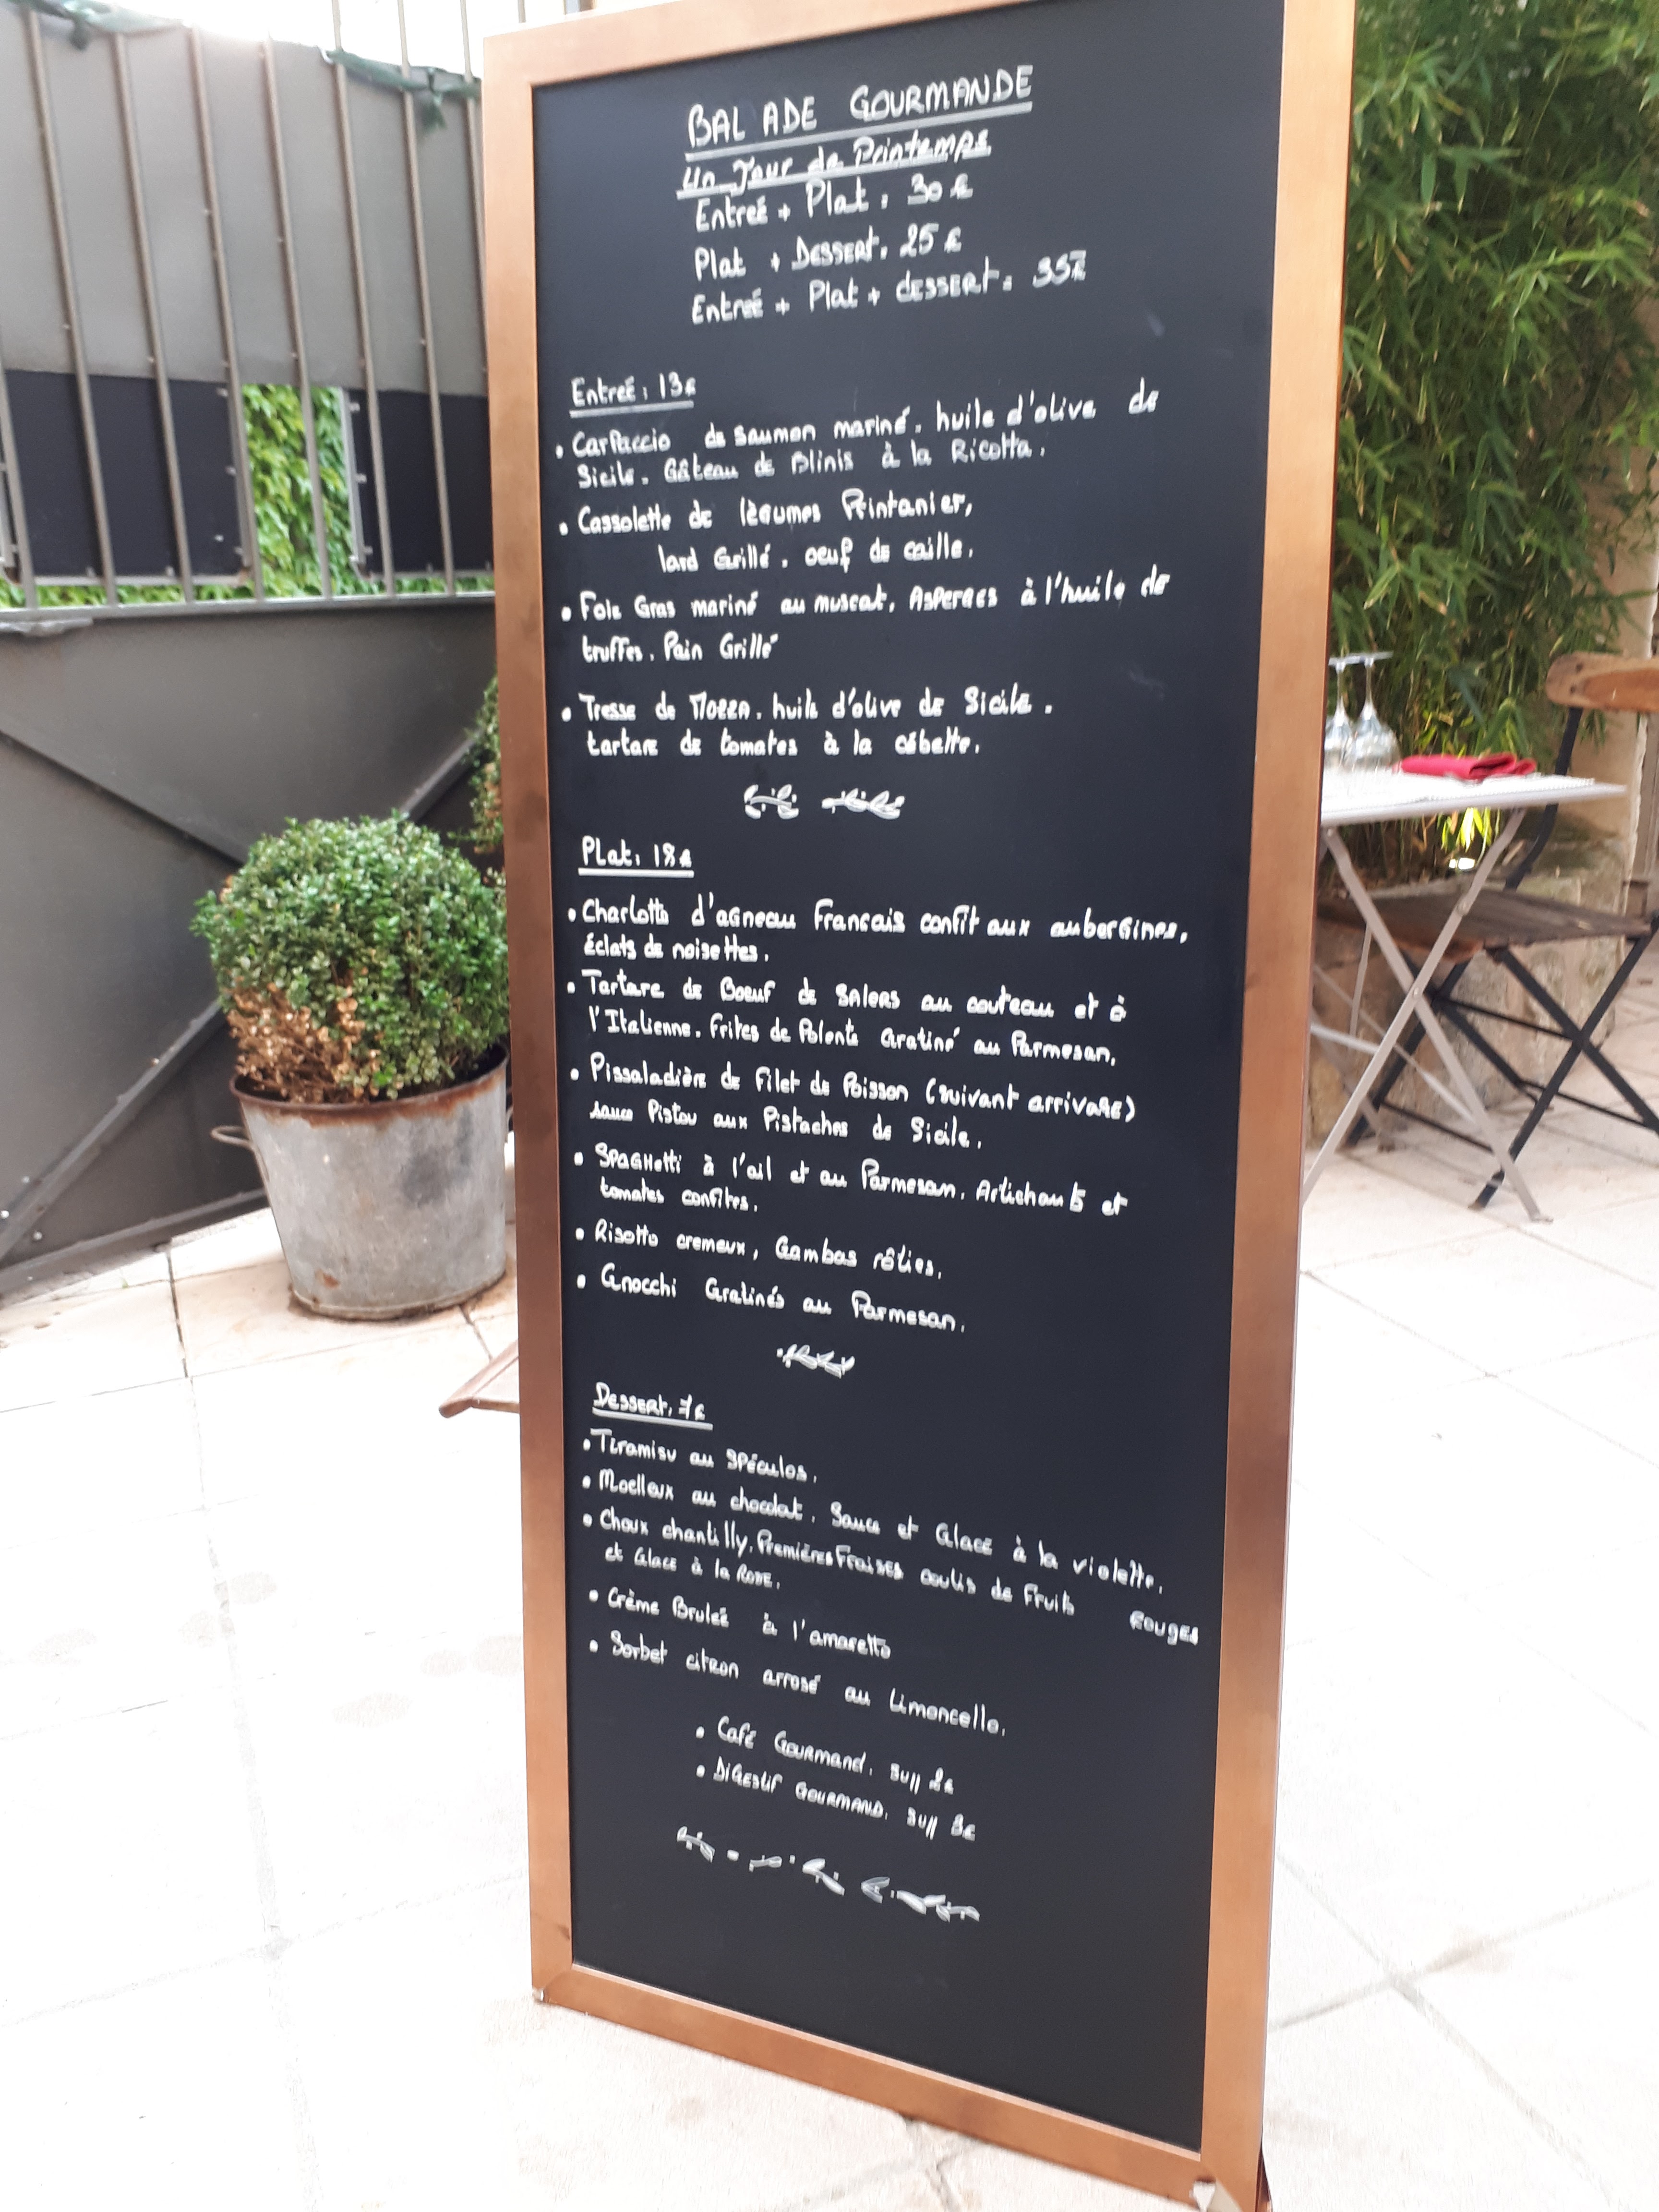 BALADE GOURMANDE
Un Jour de Printemps
Entreé + Plat : 30 €
Plat + DESSERT. 25 €
Entreé + Plat + dESSERT : 35€
Entreé : 13€
• Carpaccio de saumon mariné. huile d'olive de
Sicile. Gâteau de Blinis à la Ricotta.
• Cassolette de légumes Printanier,
lard Grillé. oeuf de caille.
• Foie Gras mariné au muscat. Asperges à l'huile de
truffes. Pain Grillé
• Tresse de Mozza. huile d'olive de Sicile.
tartare de tomates à la cébette.
Plat : 18€
• Charlotte d'agneau Francais confit aux aubergines,
éclats de noisettes.
• Tartare de Boeuf de Salers au couteau et à
l'Italienne. Frites de Polenta Gratiné au Parmesan.
• Pissaladière de Filet de Poisson (suivant arrivage)
sauce Pistou aux Pistaches de Sicile.
• Spaghetti à l'ail et au Parmesan. Artichauts et
tomates confites.
• Risotto cremeux, Gambas rôties.
• Gnocchi Gratinés au Parmesan.
DESSERT. 7€
• Tiramisu au spéculos.
• Moelleux au chocolat. Sauce et Glace à la violette.
• Choux chantilly. Premières Fraises coulis de Fruits Rouges
et Glace à la Rose.
• Crème Bruleé à l'amaretto
• Sorbet citron arrosé au Limoncello.
• Café Gourmand. sup 2€
• Digestif GOURMAND. sup 3€